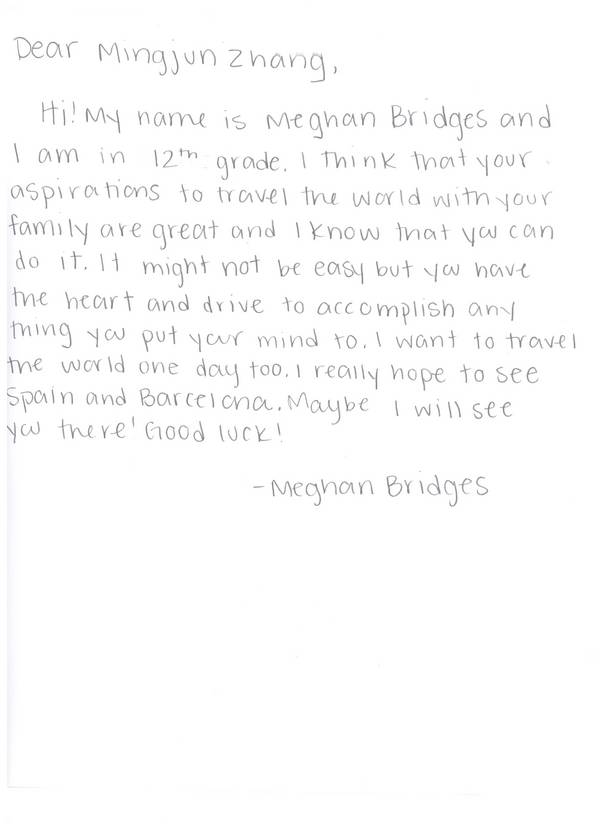 Dear Mingjun Zhang,
Hi! My name is Meghan Bridges and
I am in 12th grade. I think that your
aspirations to travel the world with your
family are great and I know that you can
do it. It might not be easy but you have
the heart and drive to accomplish any
thing you put your mind to. I want to travel
the world one day too. I really hope to see
Spain and Barcelona. Maybe I will see
you there! Good luck!
-Meghan Bridges